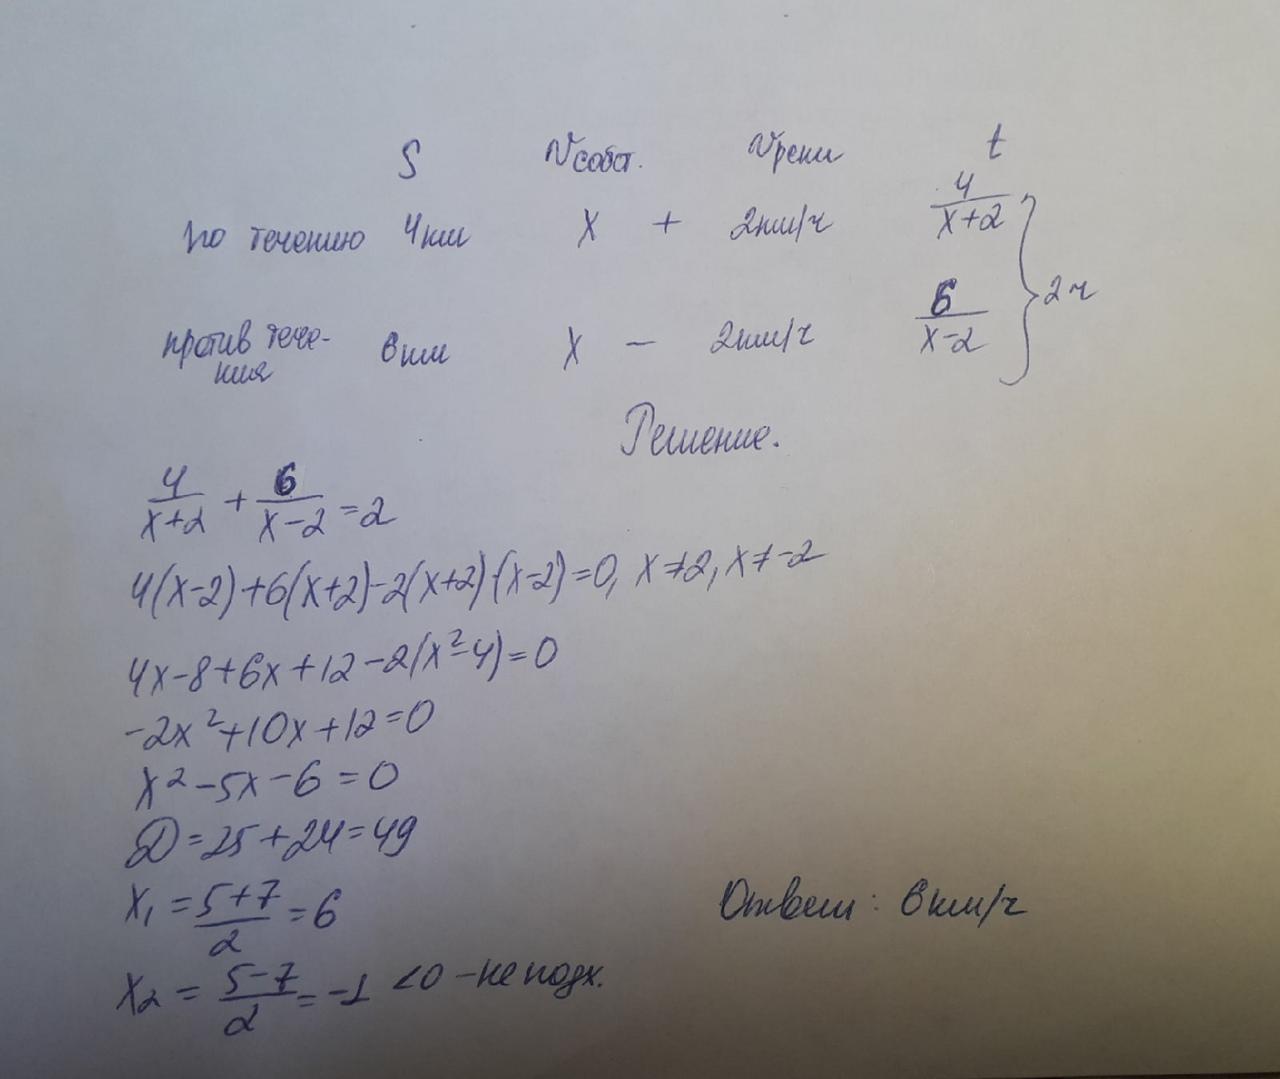 S Vсобст. Vреки t
по течению 4км X + 2км/ч 4/(x+2)
против тече- 6км X - 2км/ч 6/(x-2) } 2ч
ния
Решение.
4/(x+2) + 6/(x-2) = 2
4(x-2)+6(x+2)-2(x+2)·(x-2)=0, x≠2, x≠-2
4x-8+6x+12-2(x²-4)=0
-2x²+10x+12=0
x²-5x-6=0
D=25+24=49
x₁ = (5+7)/2 = 6
Ответ: 6км/ч
x₂ = (5-7)/2 = -1 <0 -не подх.